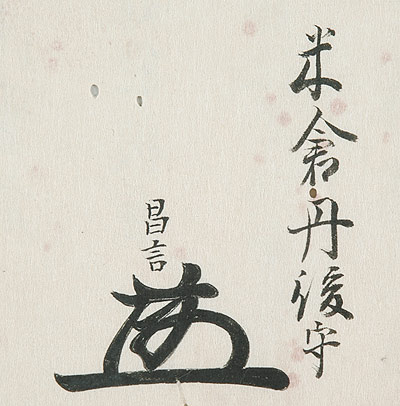 米倉丹後守
昌言